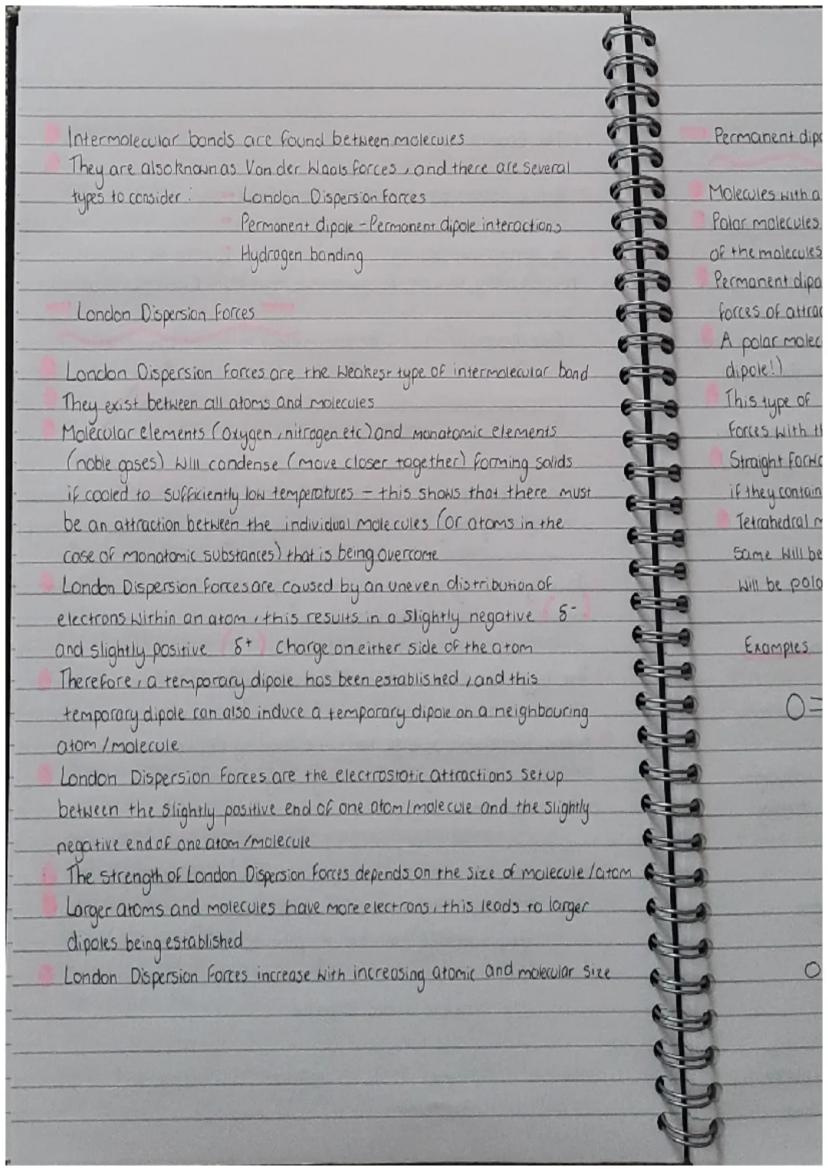 Intermolecular bonds are found between molecules
They are also known as Van der Waals forces, and there are several
types to consider: - London Dispersion Forces
- Permanent dipole - Permanent dipole interactions
- Hydrogen bonding
London Dispersion Forces
London Dispersion Forces are the weakest type of intermolecular bond
They exist between all atoms and molecules
Molecular elements (oxygen, nitrogen etc) and monatomic elements
(noble gases) will condense (move closer together) forming solids
if cooled to sufficiently low temperatures - this shows that there must
be an attraction between the individual molecules (or atoms in the
case of monatomic substances) that is being overcome
London Dispersion Forces are caused by an uneven distribution of
electrons within an atom, this results in a slightly negative (δ-)
and slightly positive (δ+) charge on either side of the atom
Therefore, a temporary dipole has been established, and this
temporary dipole can also induce a temporary dipole on a neighbouring
atom/molecule
London Dispersion Forces are the electrostatic attractions set up
between the slightly positive end of one atom/molecule and the slightly
negative end of one atom/molecule
The strength of London Dispersion Forces depends on the size of molecule/atom
Larger atoms and molecules have more electrons, this leads to larger
dipoles being established
London Dispersion Forces increase with increasing atomic and molecular size
Permanent dipo
Molecules with a
Polar molecules
of the molecules
Permanent dipo
forces of attrac
A polar molec
dipole!)
This type of
forces with th
Straight forwa
if they contain
Tetrahedral m
same will be
will be pola
Examples
O=
O